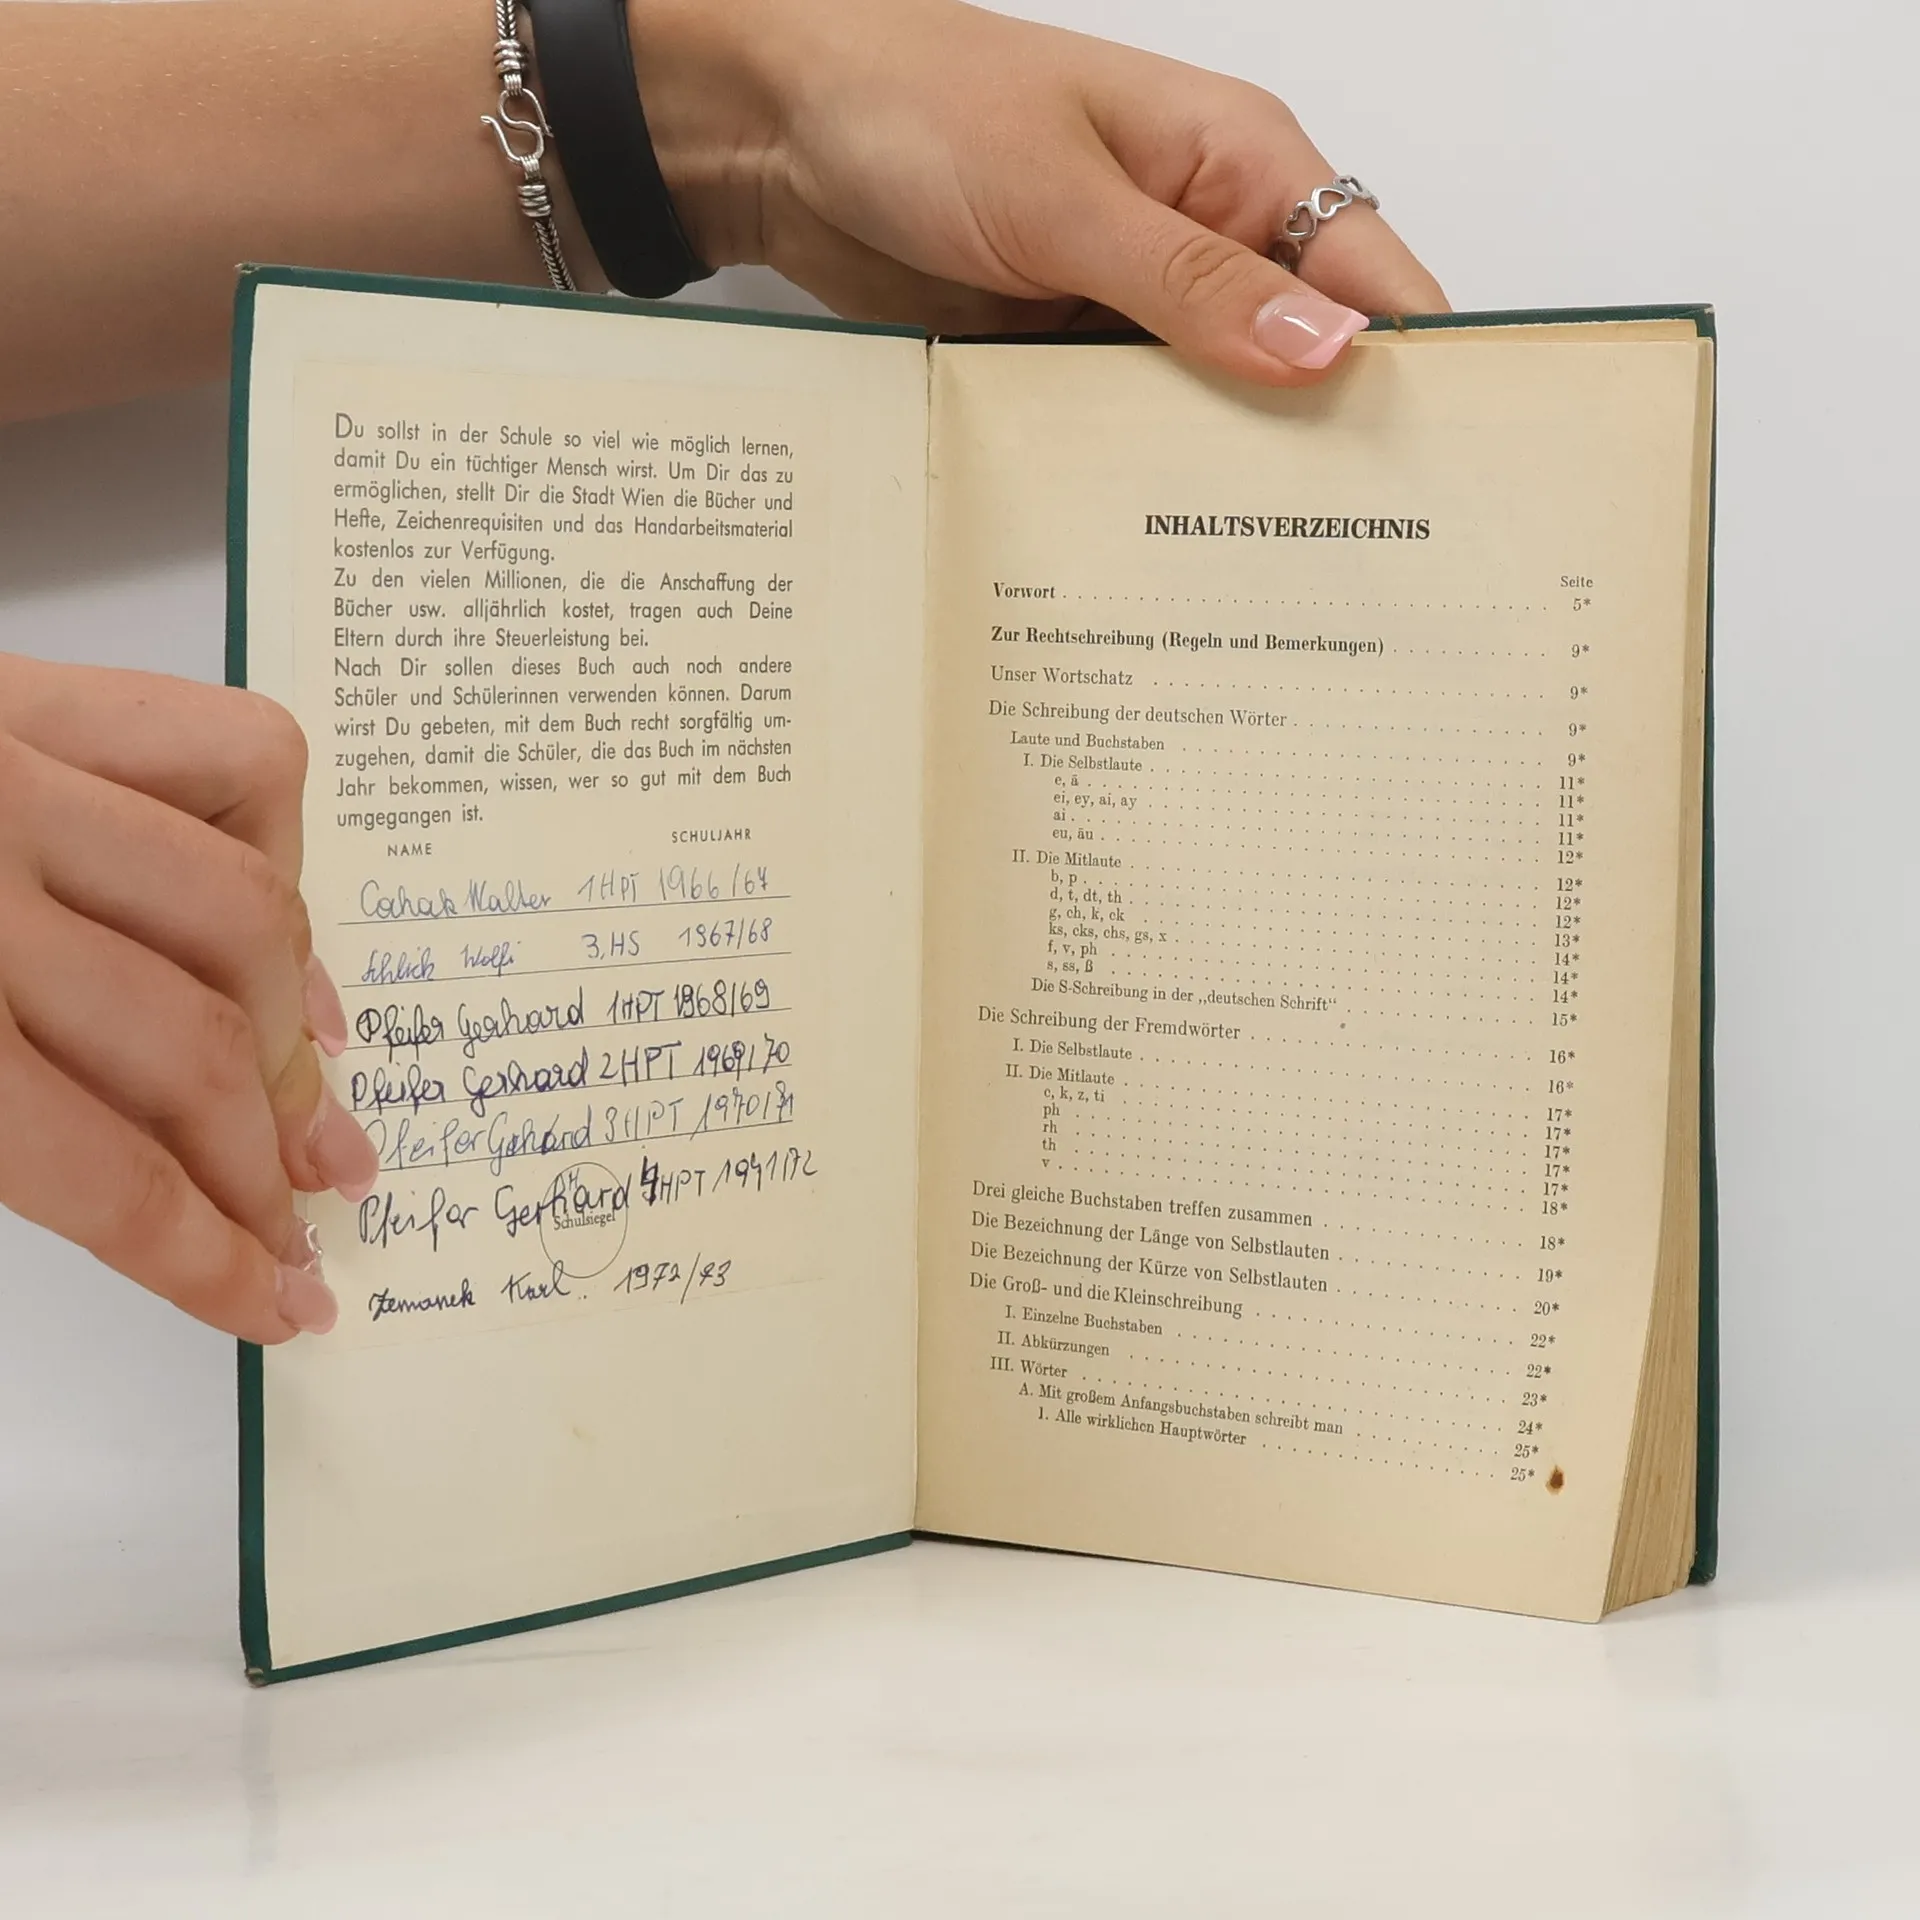 Du sollst in der Schule so viel wie möglich lernen,
damit Du ein tüchtiger Mensch wirst. Um Dir das zu
ermöglichen, stellt Dir die Stadt Wien die Bücher und
Hefte, Zeichenrequisiten und das Handarbeitsmaterial
kostenlos zur Verfügung.
Zu den vielen Millionen, die die Anschaffung der
Bücher usw. alljährlich kostet, tragen auch Deine
Eltern durch ihre Steuerleistung bei.
Nach Dir sollen dieses Buch auch noch andere
Schüler und Schülerinnen verwenden können. Darum
wirst Du gebeten, mit dem Buch recht sorgfältig um-
zugehen, damit die Schüler, die das Buch im nächsten
Jahr bekommen, wissen, wer so gut mit dem Buch
umgegangen ist.
NAME SCHULJAHR
Walter 1HPT 1966/67
Schlick Wolfi 3.HS 1967/68
Pfeifer Gerhard 1HPT 1968/69
Pfeifer Gerhard 2HPT 1969/70
Pfeifer Gerhard 3HPT 1970/71
Pfeifer Gerhard 4HPT 1971/72
Schulsiegel
Zemanek Karl. 1972/73
INHALTSVERZEICHNIS
Seite
Vorwort . . . 5*
Zur Rechtschreibung (Regeln und Bemerkungen) . . . 9*
Unser Wortschatz . . . 9*
Die Schreibung der deutschen Wörter . . . 9*
Laute und Buchstaben . . . 9*
I. Die Selbstlaute . . . 11*
e, ä . . . 11*
ei, ey, ai, ay . . . 11*
ai . . . 11*
eu, äu . . . 12*
II. Die Mitlaute . . . 12*
b, p . . . 12*
d, t, dt, th . . . 12*
g, ch, k, ck . . . 13*
ks, cks, chs, gs, x . . . 14*
f, v, ph . . . 14*
s, ss, ß . . . 14*
Die S-Schreibung in der „deutschen Schrift“ . . . 15*
Die Schreibung der Fremdwörter . . . 16*
I. Die Selbstlaute . . . 16*
II. Die Mitlaute . . . 17*
c, k, z, ti . . . 17*
ph . . . 17*
rh . . . 17*
th . . . 17*
v . . . 18*
Drei gleiche Buchstaben treffen zusammen . . . 18*
Die Bezeichnung der Länge von Selbstlauten . . . 19*
Die Bezeichnung der Kürze von Selbstlauten . . . 20*
Die Groß- und die Kleinschreibung . . . 22*
I. Einzelne Buchstaben . . . 22*
II. Abkürzungen . . . 23*
III. Wörter . . . 24*
A. Mit großem Anfangsbuchstaben schreibt man . . . 25*
1. Alle wirklichen Hauptwörter . . . 25*